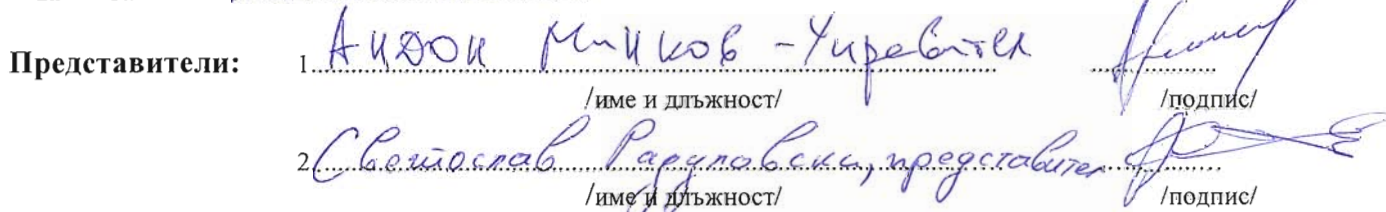 Представители: 1. Андон Минков - Управител
/име и длъжност/ /подпис/
2. Светослав Радуловски, представител
/име и длъжност/ /подпис/